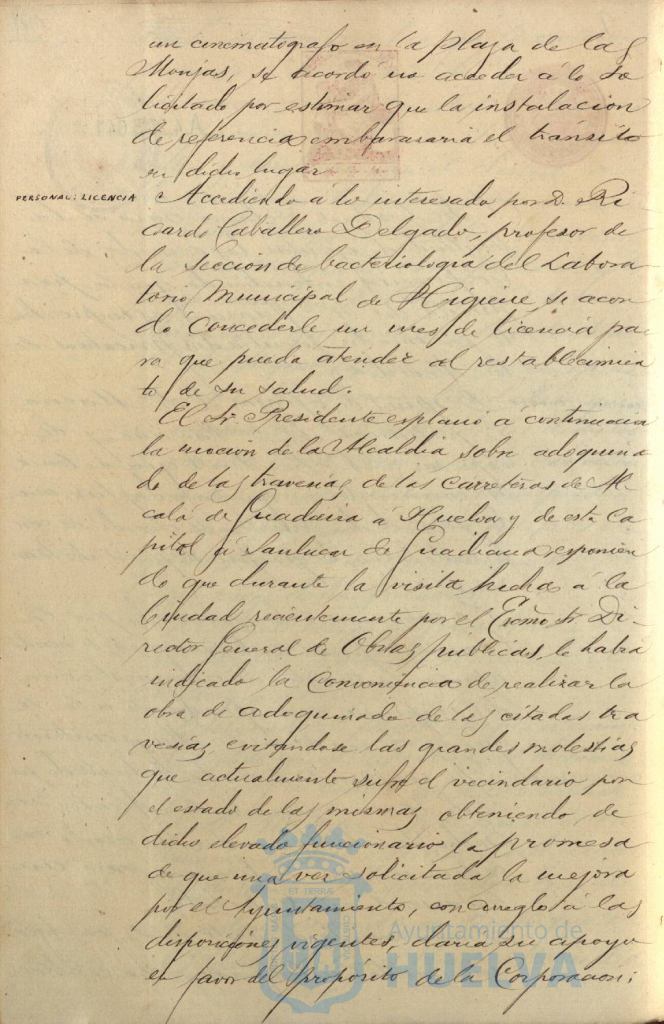 un cinematografo en la plaza de las
Monjas, se acordó no acceder á lo so
licitado por estimar que la instalacion
de referencia embarasaria el tránsito
en dicho lugar
PERSONAL: LICENCIA
Accediendo á lo interesado por D. Ri
cardo Caballero Delgado, profesor de
la sección de bacteriologia del Labora
torio Municipal de Higiene se acor
dó concederle un mes de licencia pa
ra que pueda atender al restablecimien
to de su salud.
El Sr. Presidente esplanó á continuacion
la mocion de la Alcaldia sobre adoquina
do de las travesias de las carreteras de Al
calá de Guadaira á Huelva y de esta Ca
pital á Sanlucar de Guadiana esponien
do que durante la visita hecha á la
Ciudad recientemente por el Excmo Sr. Di-
rector General de Obras públicas, le habia
indicado la conveniencia de realizar la
obra de adoquinado de las citadas tra
vesias evitandose las grandes molestias
que actualmente sufre el vecindario por
el estado de las mismas obteniendo de
dicho elevado funcionario la promesa
de que una vez solicitada la mejora
por el Ayuntamiento, con arreglo á las
disposiciones vigentes, daria su apoyo
en favor del propósito de la Corporacion;
ET TERRÆ
Ayuntamiento de
HUELVA